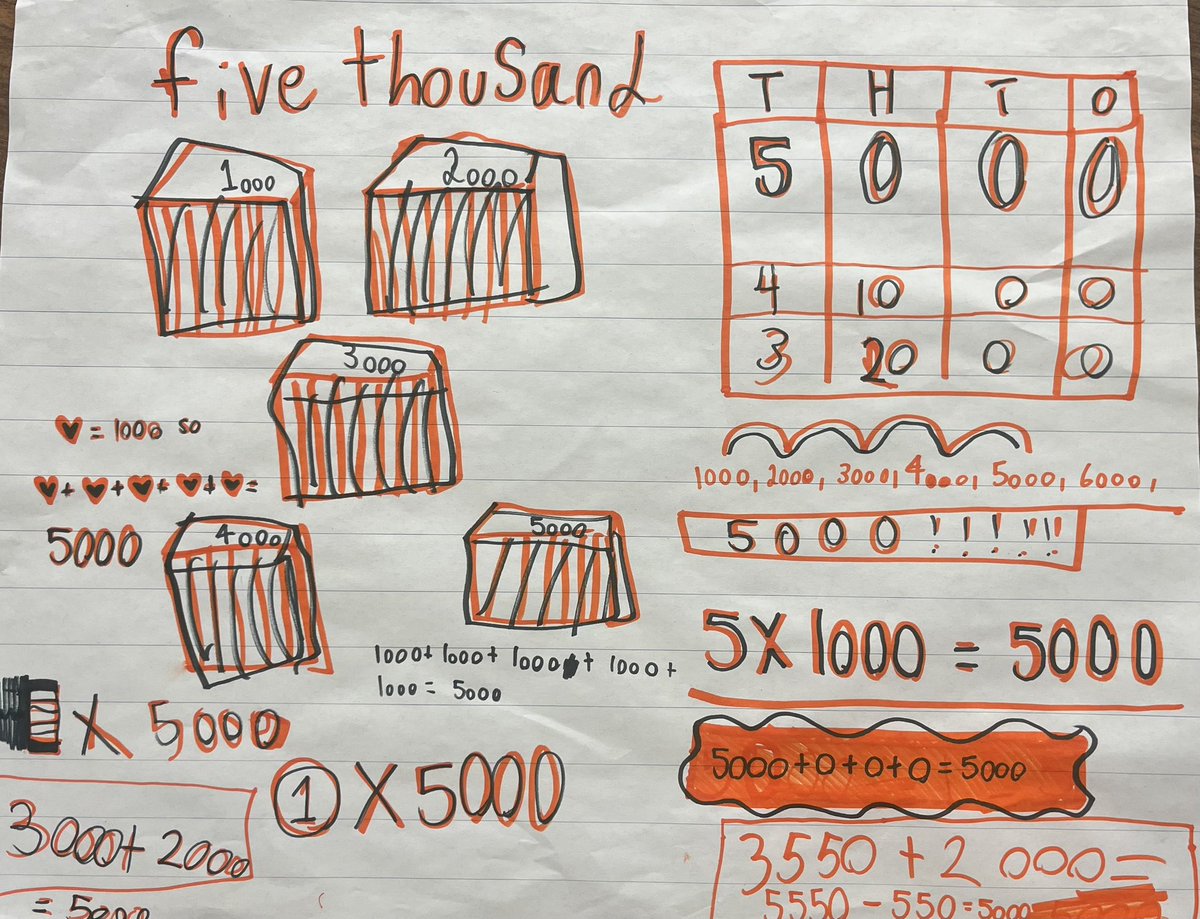 five thousand
1000
2000
3000
♥ = 1000 so
♥ + ♥ + ♥ + ♥ + ♥ =
5000
4000
5000
1000 + 1000 + 1000 + 1000 +
1000 = 5000
X 5000
1 X 5000
3000 + 2000
= 5000
T H T O
5 0 0 0
4 10 0 0
3 20 0 0
1000, 2000, 3000, 4000, 5000, 6000,
5000 !!!!!!
5 X 1000 = 5000
5000 + 0 + 0 + 0 = 5000
3550 + 2000 =
5550 - 550 = 5000